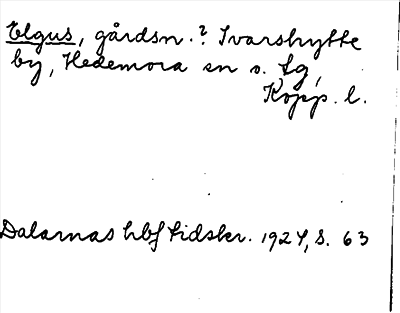 Elgus, gårdsn.? Ivarshytte
by, Hedemora sn o. tg,
Kopp. l.
Dalarnas hbf tidskr. 1924, S. 63